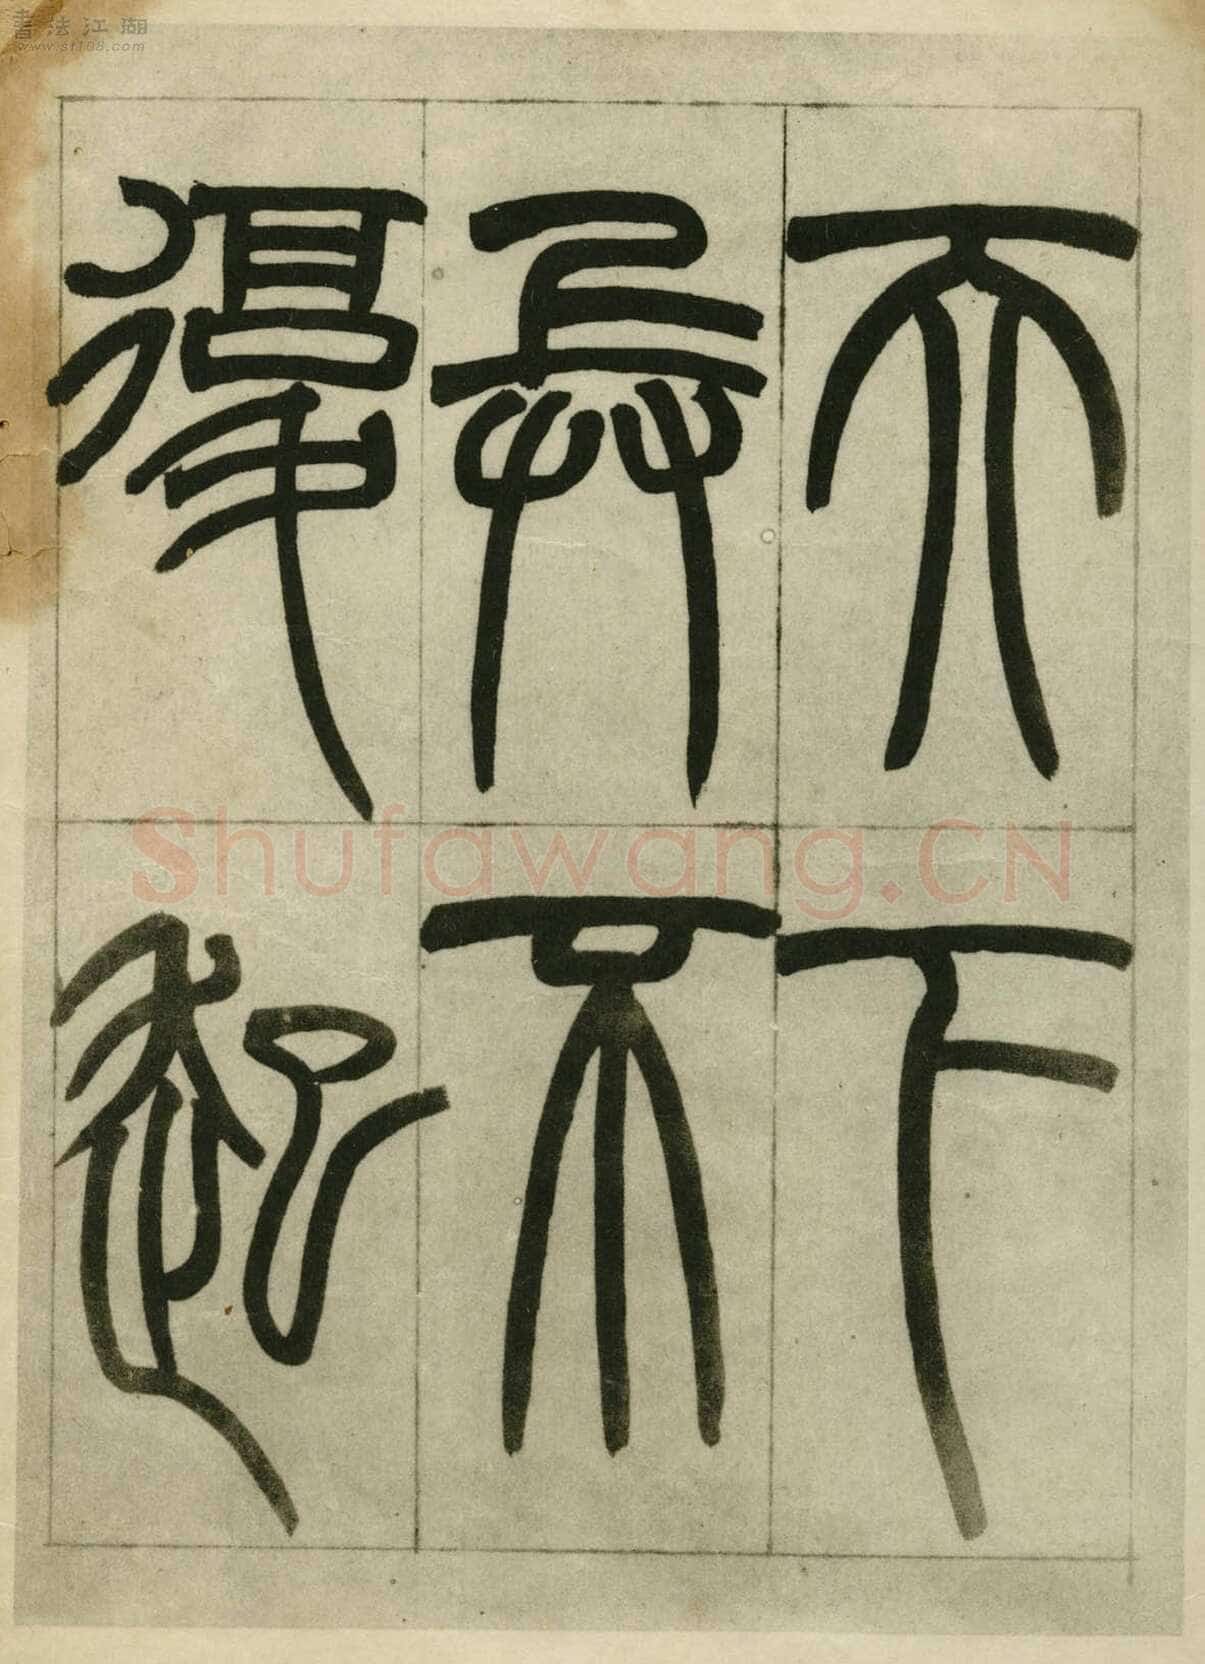 書法江湖
www.sf108.com
天下
兵不
復起
Shufawang.CN